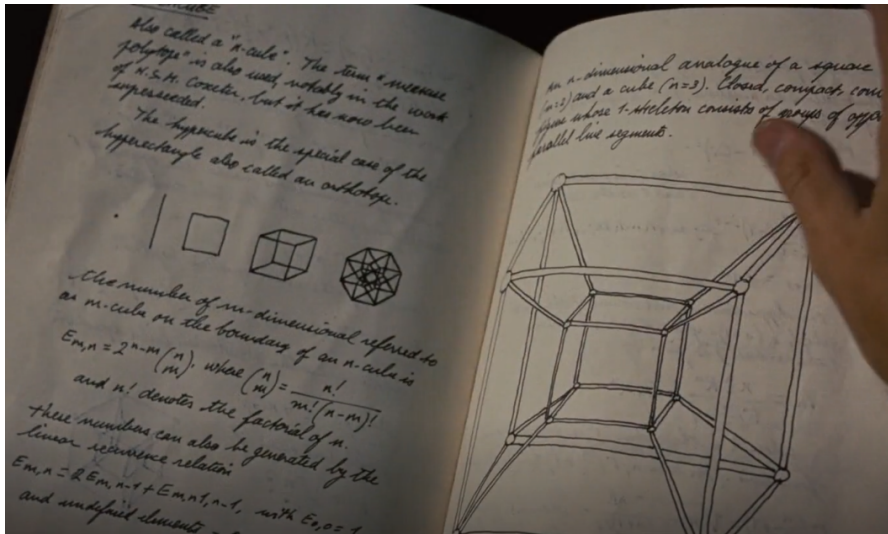 Also called a "n-cube". The term "measure
polytope" is also used, notably in the work
of H.S.M. Coxeter, but it has now been
superseded.
The hypercube is the special case of the
hyperrectangle also called an orthotope.
the number of m-dimensional referred to
as m-cube on the boundary of an n-cube is
E_{m,n} = 2^{n-m} (n m), where (n m) = n! / m!(n-m)!
and n! denotes the factorial of n.
these numbers can also be generated by the
linear recurrence relation
E_{m,n} = 2E_{m,n-1} + E_{m,n1,n-1}, with E_{0,0} = 1
and undefined elements
An n-dimensional analogue of a square
(n=2) and a cube (n=3). Closed, compact,
figure whose 1-skeleton consists of of
parallel line segments.